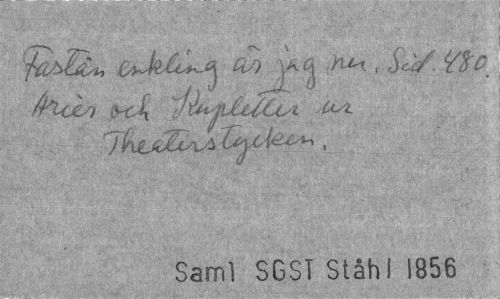 Fastän enkling är jag nu. Sid. 480.
Arier och Kupletter ur
Theaterstycken.
Saml SGST Ståhl 1856